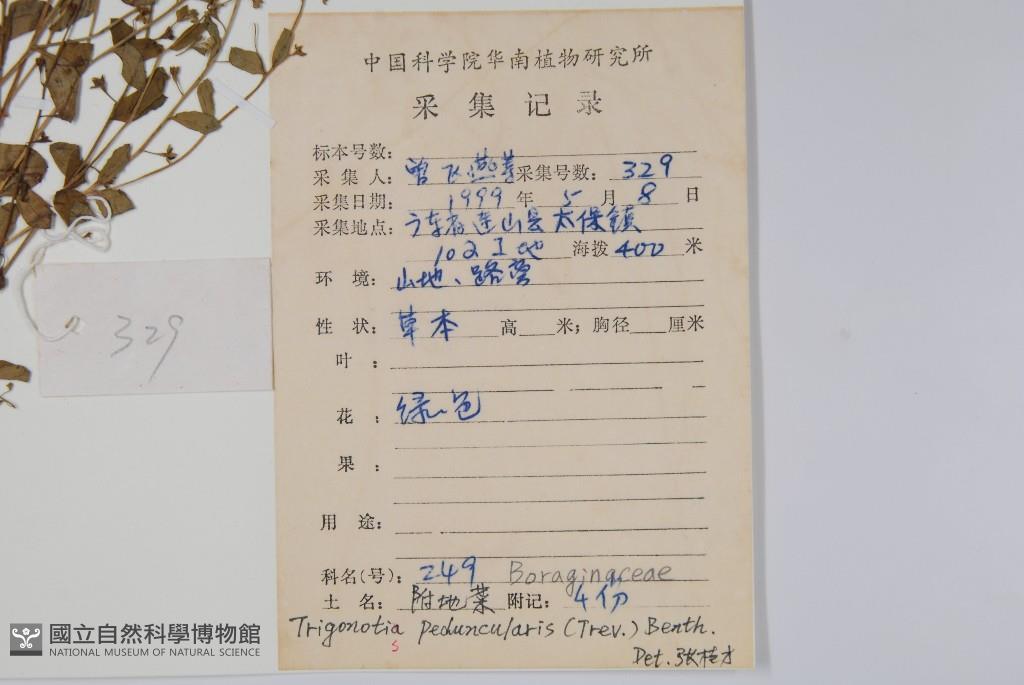 中国科学院华南植物研究所
采集记录
标本号数:
采集人: 曾飞燕等 采集号数: 329
采集日期: 1999 年 5 月 8 日
采集地点: 广东省连山县太保镇
102工地 海拨 400 米
环境: 山地、路旁
性状: 草本 高 米; 胸径 厘米
叶:
花: 绿色
果:
用途:
科名(号): 249 Boraginaceae
土名: 附地菜 附记: 4份
Trigonotia peduncularis (Trev.) Benth.
s
Det. 张桂才
329
國立自然科學博物館
NATIONAL MUSEUM OF NATURAL SCIENCE